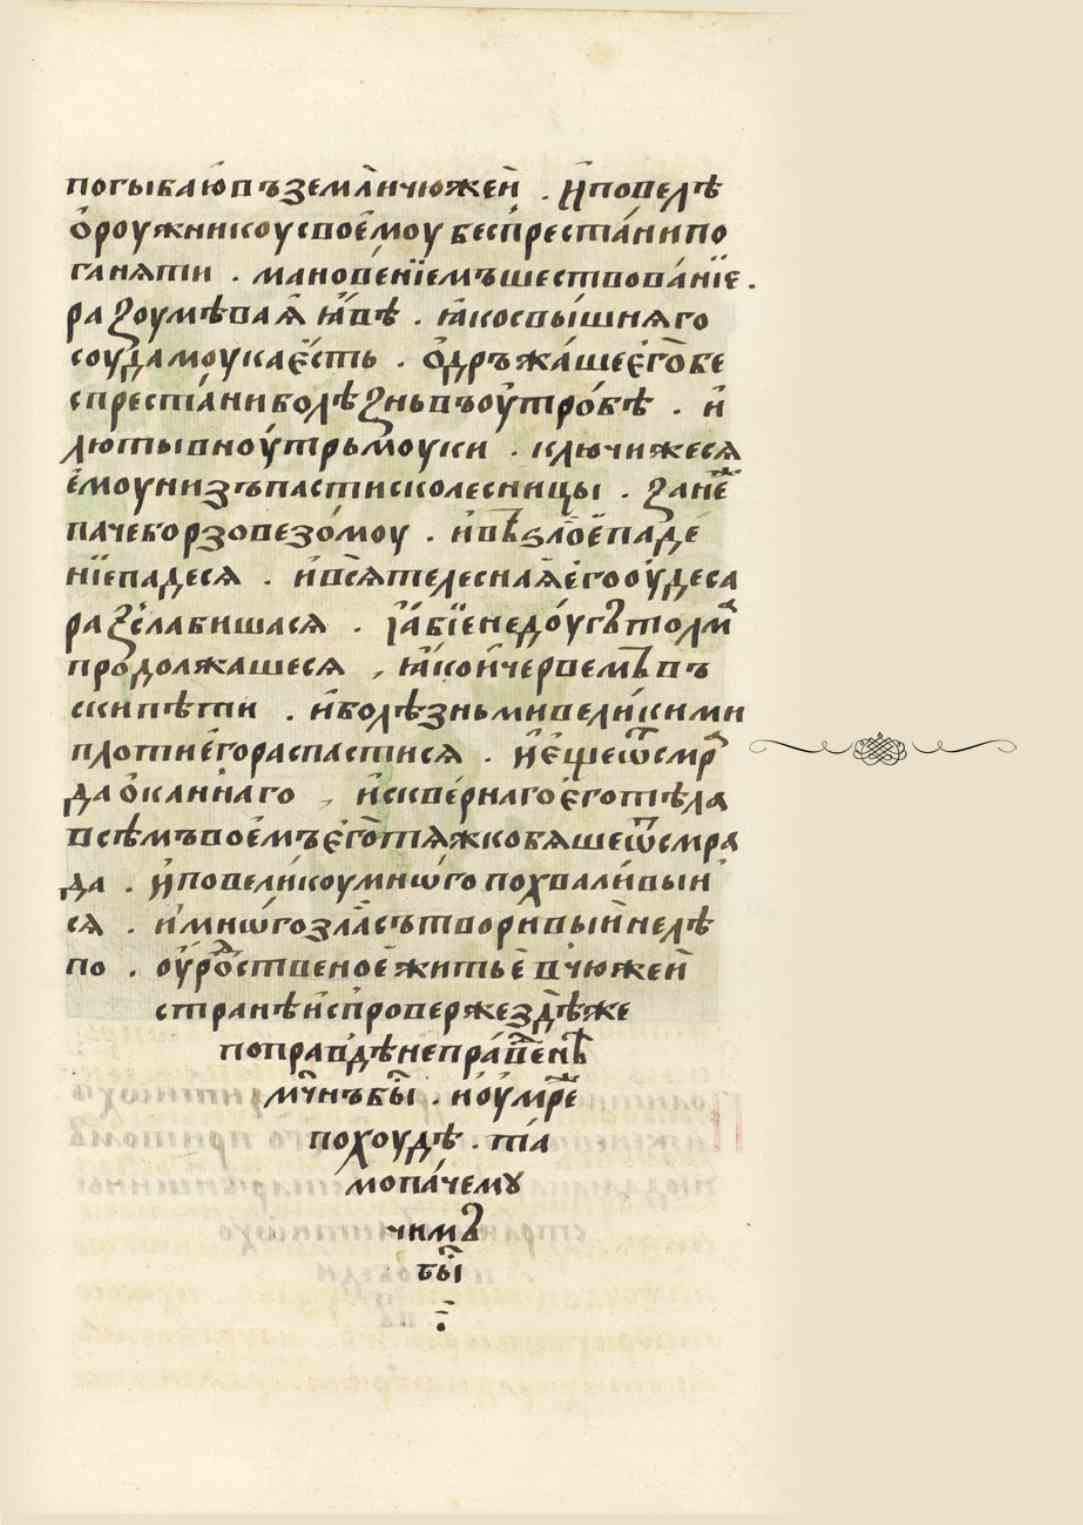 погыбаю въ земли чюжеи . И повелѣ
ѻроужникоу своемоу беспрестани по
ганѧти . мановенїемъ шествованїе .
разоумѣваѧ ꙗвѣ . ꙗко с вышнѧго
соуда моука єсть . ѻдръжаше єго бе
спрестани болѣзнь въ оутробѣ . и
люты вноутрь моуки . ключи же сѧ
емоу низъпасти с колесницы . зане
паче борзо везомоу . и въ ѕлое паде
нїе паде сѧ . и всѧ телеснаѧ его оудеса
разслабиша сѧ . їабїе недоугъ толма
продолжаше сѧ , ꙗко и червемъ въ
скипѣти . и болѣзньми великими
плоти его распасти сѧ . И єще ѿ смра
да ѻканнаго , и сквернаго єго тѣла
всѣмъ воемъ єго тѧжко бѧше ѿ смра
да . и по великоу мнѡго похваливыи
сѧ . и мнѡго зла сътворивыи нелѣ
по . оуродственое житье в чюжеи
странѣ испроверже здѣ же
по правдѣ неправеденъ
мчнъ бы . и оумре
по хоудѣ . та
мо паче му
чимъ
бы